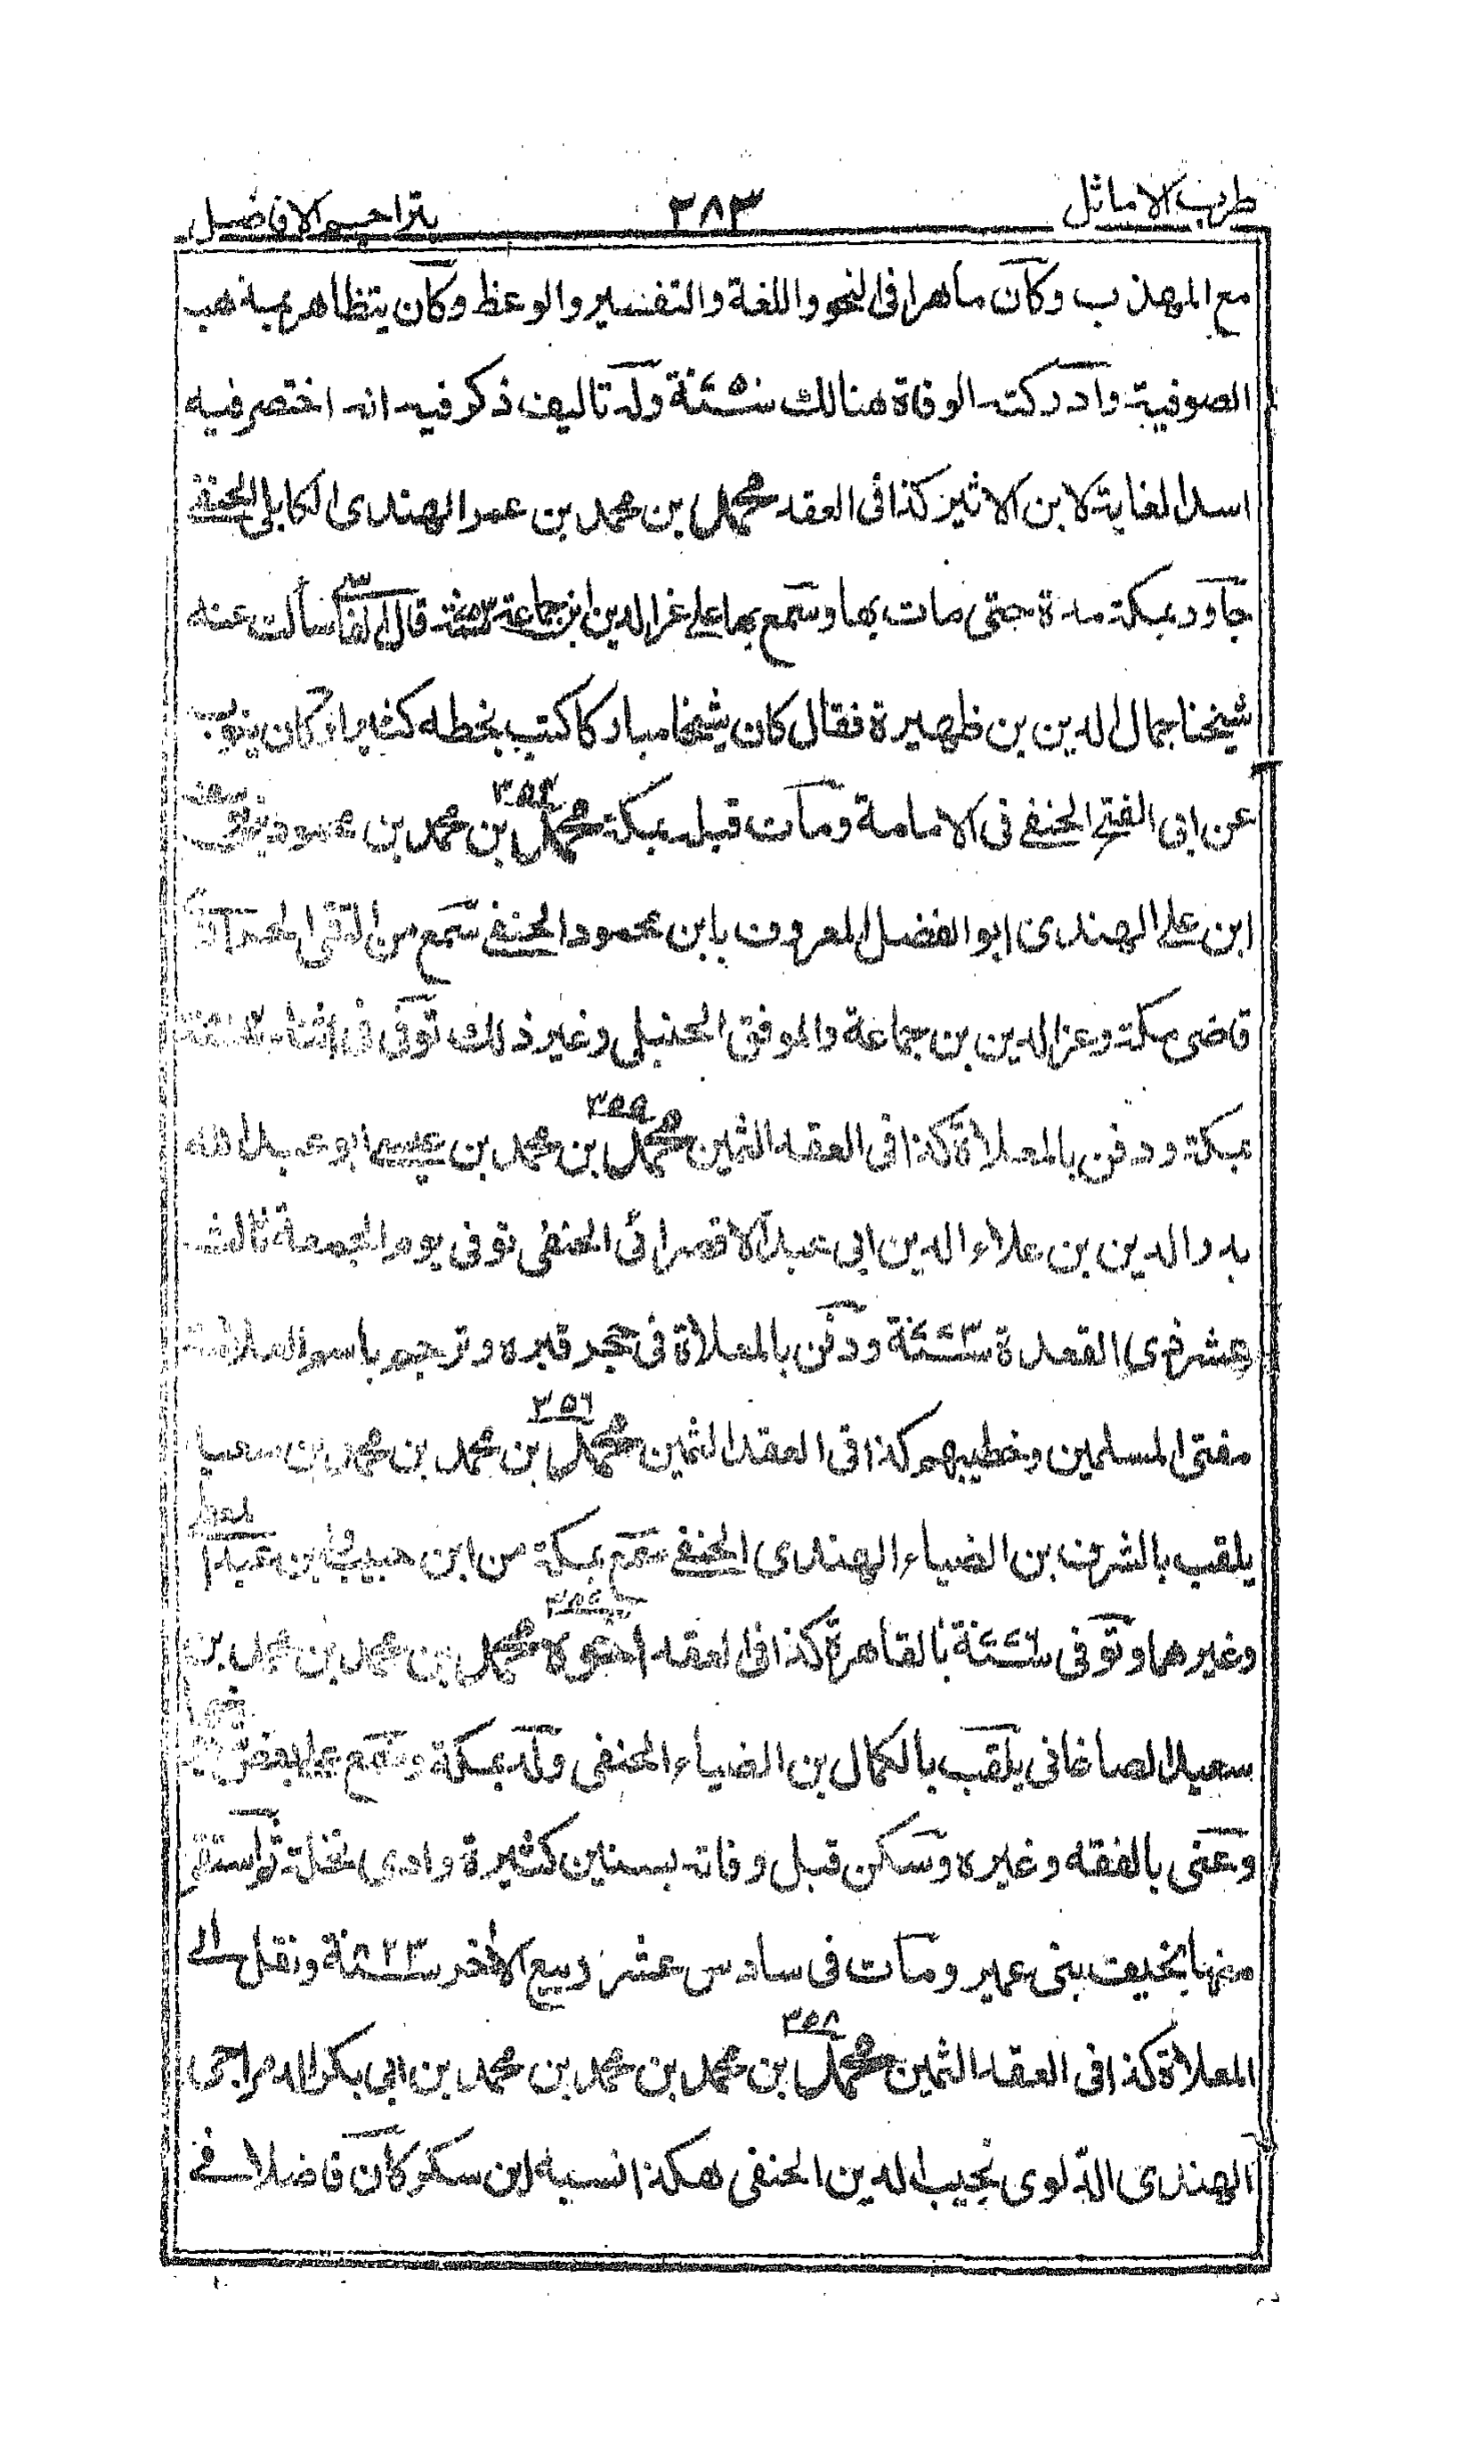 طرب الاماثل ٣٨٣ بتراجم الافاضل
مع المهذب وكان ماهرا فى النحو واللغة والتفسير والوعظ وكان يتظاهر بمذهب
الصوفية وادركته الوفاة هنالك سنة وله تاليف ذكر فيه انه اختصر فيه
اسد الغابة لابن الاثير كذا فى العقد محمد بن محمد بن عمر الهندى الكابلى الحنفے
جاور بمكة مدة حتى مات بها وسمع بها علے عز الدين ابن جماعة قال سألت عنه
شيخنا جمال الدين بن ظهيرة فقال كان شيخا مباركا كتب بخطه كثيرا وكان ينوب
عن ابى الفتح الحنفے فى الامامة ومات قبله بمكة ٣٥٤ محمد بن محمد بن محمود بن
ابن علے الهندى ابو الفضل المعروف بابن محمود الحنفے سمع من التقى
قاضى مكة وعز الدين بن جماعة والموفق الحنبلى وغير ذلك توفى فى اثناء
بمكة ودفن بالمعلاة كذا فى العقد الثمين ٣٥٥ محمد بن محمد بن عيسے ابو عبد الله
بدر الدين بن علاء الدين ابى عبد الاقصرائى الحنفى توفى يوم الجمعة ثالث
عشر ذى القعدة سنة ودفن بالمعلاة فى حجر قبره وترجم باسم العلامة
مفتى المسلمين وخطيبهم كذا فى العقد الثمين ٣٥٦ محمد بن محمد بن محمد بن سعيد
يلقب بالشرف بن الضياء الهندى الحنفے سمع بمكة من ابن حبيب وابن عبد المعطے
وغيرهما وتوفى سنة بالقاهرة كذا فى العقد اخوه محمد بن محمد بن محمد بن
سعيد الصاغانى يلقب بالكمال بن الضياء الحنفى ولد بمكة وسمع بها
وعنى بالفقه وغيره وسكن قبل وفاته بسنين كثيرة وادى نخلة
منها بخيف بنى عمير ومات فى سادس عشر ربيع الاخر سنة ٨٢٣ ونقل الے
المعلاة كذا فى العقد الثمين ٣٥٨ محمد بن محمد بن محمد بن محمد بن ابى بكر الدمراجى
الهندى الدلوى نجيب الدين الحنفى هكذا نسبه ابن سكر كان فاضلا فے